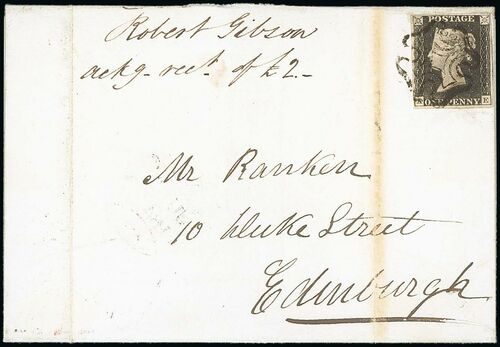 Robert Gibson
ackg. rect. of £2 -
POSTAGE
E
ONE PENNY
Mr Ranken
10 Duke Street
Edinburgh